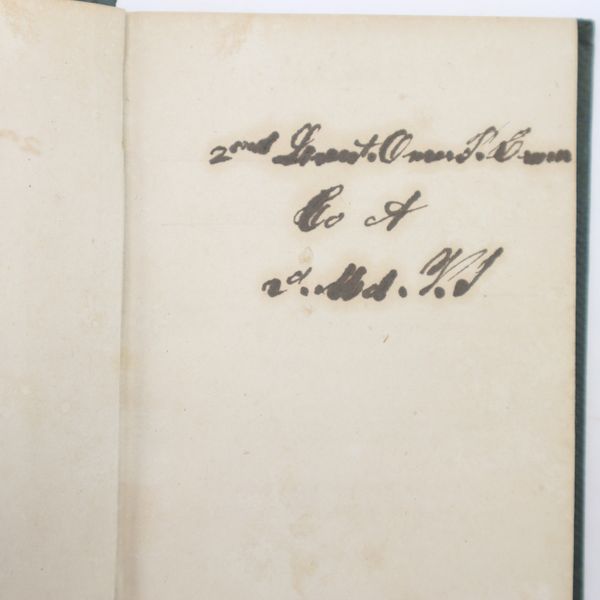 2nd Lieut. Omer S. Ewen
Co A
2d. Md. V. I